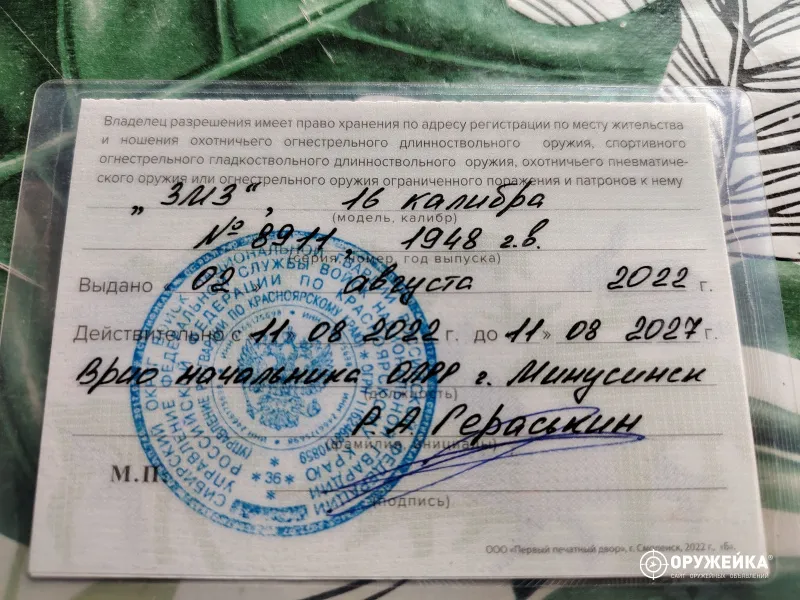 Владелец разрешения имеет право хранения по адресу регистрации по месту жительства
и ношения охотничьего огнестрельного длинноствольного оружия, спортивного
огнестрельного гладкоствольного длинноствольного оружия, охотничьего пневматиче-
ского оружия или огнестрельного оружия ограниченного поражения и патронов к нему
„ЗМЗ“, 16 калибра
(модель, калибр)
№ 8911, 1948 г.в.
(серия, номер, год выпуска)
Выдано « 02 » августа 2022 г.
Действительно с « 11 » 08 2022 г. до « 11 » 08 2027 г.
Врио начальника ОЛРР г. Минусинск
(должность)
Р.А. Гераськин
(фамилия, инициалы)
М.П.
(подпись)
* 36 *
ООО «Первый печатный двор», г. Смоленск, 2022 г., «Б».
ОРУЖЕЙКА
САЙТ ОРУЖЕЙНЫХ ОБЪЯВЛЕНИЙ